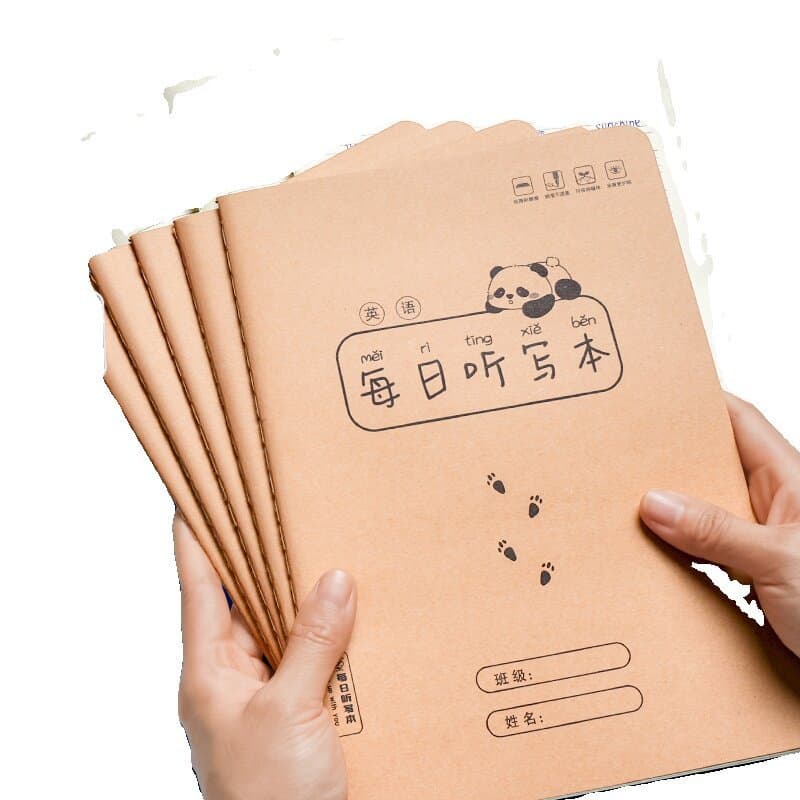 sunshine
英 语
měi rì tīng xiě běn
每日听写本
班级:
姓名:
每日听写本
with you